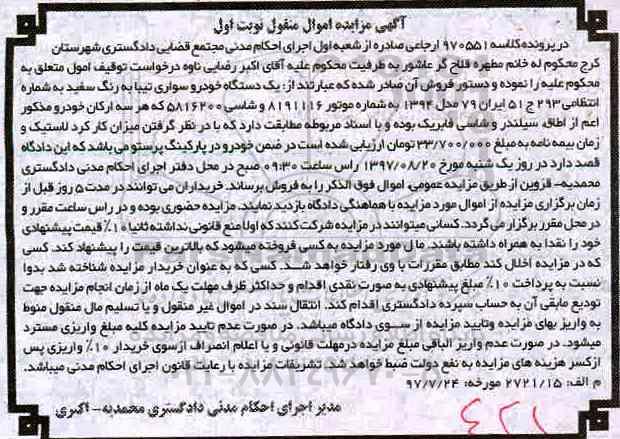 آگهی مزایده اموال منقول نوبت اول
در پرونده کلاسه ۹۷۰۵۵۱ ارجاعی صادره از شعبه اول اجرای احکام مدنی مجتمع قضایی دادگستری شهرستان
کرج محکوم له خانم مطهره فلاح گر عاشور به طرفیت محکوم علیه آقای اکبر رضایی ناوه درخواست توقیف امول متعلق به
محکوم علیه را نموده و دستور فروش آن صادر شده که عبارتند از: یک دستگاه خودرو سواری تیبا به رنگ سفید به شماره
انتظامی ۲۹۳ ج ۵۱ ایران ۷۹ مدل ۱۳۹۴ به شماره موتور ۸۱۹۱۱۱۶ و شاسی ۵۸۱۶۲۰۰ که هر سه ارکان خودرو مذکور
اعم از اطاق، سیلندر و شاسی فابریک بوده و با اسناد مربوطه مطابقت دارد که با در نظر گرفتن میزان کار کرد لاستیک و
زمان بیمه نامه به مبلغ ۳۳/۷۰۰/۰۰۰ تومان ارزیابی شده است در ضمن خودرو در پارکینگ پرستو می باشد که این دادگاه
قصد دارد در روز یک شنبه مورخ ۱۳۹۷/۰۸/۲۰ راس ساعت ۰۹:۳۰ صبح در محل دفتر اجرای احکام مدنی دادگستری
محمدیه- قزوین از طریق مزایده عمومی، اموال فوق الذکر را به فروش برساند. خریداران می توانند در مدت ۵ روز قبل از
زمان برگزاری مزایده از اموال مورد مزایده با هماهنگی دادگاه بازدید نمایند. مزایده حضوری بوده و در راس ساعت مقرر و
در محل مقرر برگزار می گردد. کسانی میتوانند در مزایده شرکت کنند که اولا منع قانونی نداشته ثانیا ۱۰٪ قیمت پیشنهادی
خود را نقدا به همراه داشته باشند. مال مورد مزایده به کسی فروخته میشود که بالاترین قیمت را پیشنهاد کند. کسی
که در مزایده اخلال کند مطابق مقررات با وی رفتار خواهد شد. کسی که به عنوان خریدار مزایده شناخته شد بدوا
نسبت به پرداخت ۱۰٪ مبلغ پیشنهادی به صورت نقدی اقدام و حداکثر ظرف مهلت یک ماه از زمان انجام مزایده جهت
تودیع مابقی آن به حساب سپرده دادگستری اقدام کند. انتقال سند در اموال غیر منقول و یا تسلیم مال منقول منوط
به واریز بهای مزایده وتایید مزایده از سوی دادگاه میباشد. در صورت عدم تایید مزایده کلیه مبلغ واریزی مسترد
میشود. در صورت عدم واریز الباقی مبلغ مزایده درمهلت قانونی و یا اعلام انصراف ازسوی خریدار ۱۰٪ واریزی پس
ازکسر هزینه های مزایده به نفع دولت ضبط خواهد شد. تشریفات مزایده با رعایت قانون اجرای احکام مدنی میباشد.
م الف: ۲۷۲۱/۱۵ مورخه: ۹۷/۷/۲۴
مدیر اجرای احکام مدنی دادگستری محمدیه- اکبری